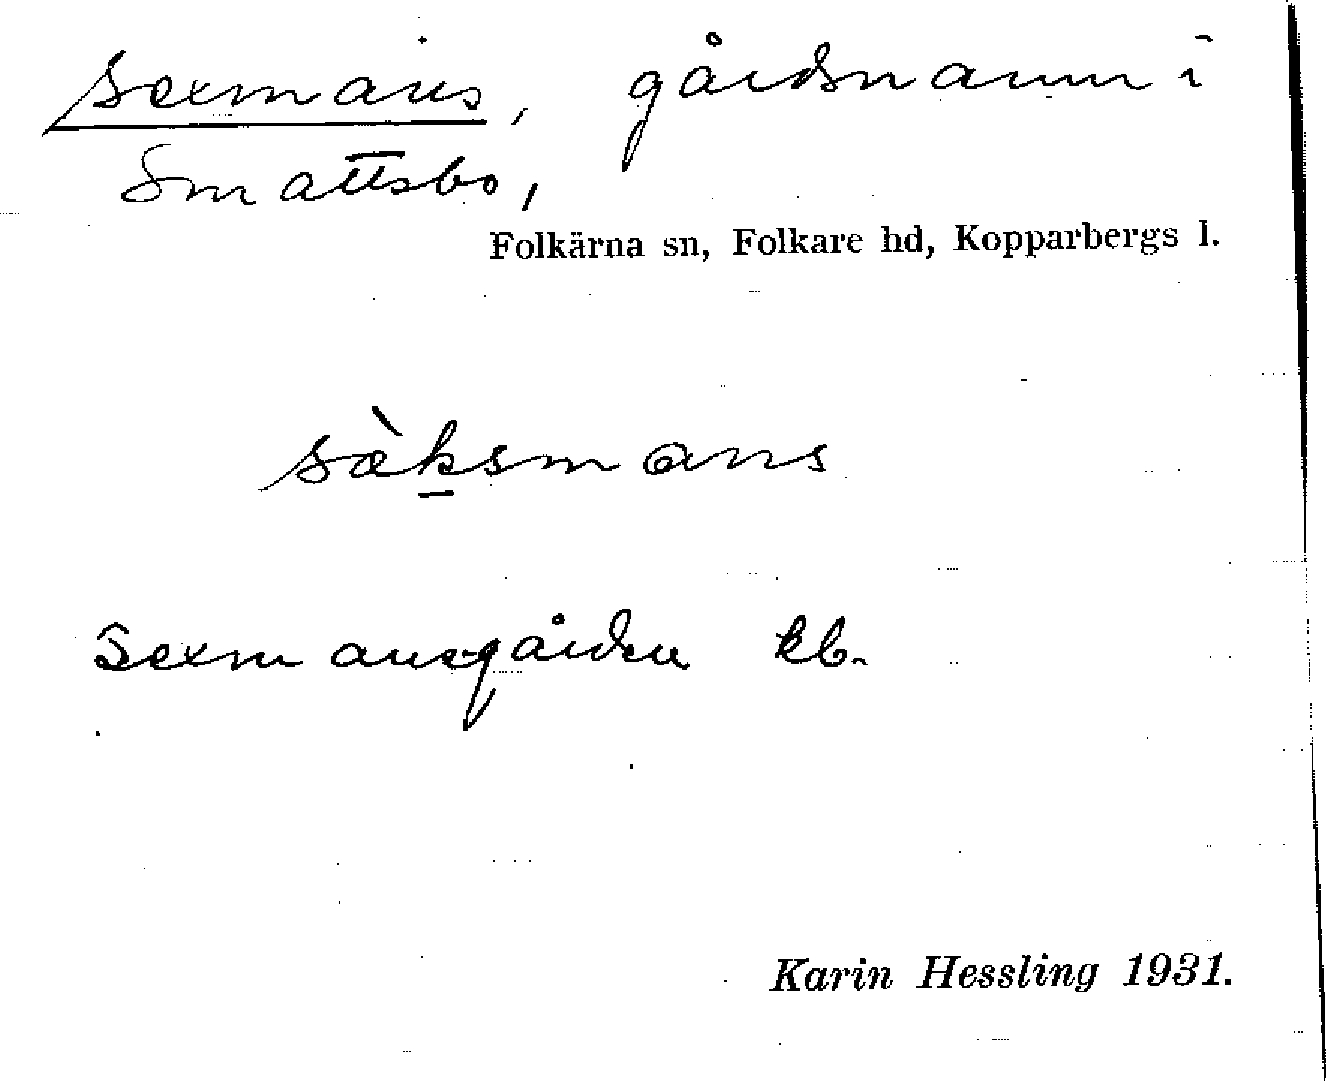 Sexmans, gårdsnamn i
Smattsbo,
Folkärna sn, Folkare hd, Kopparbergs l.
sæ̀k̠smans
Sexmansgården kb.
Karin Hessling 1931.